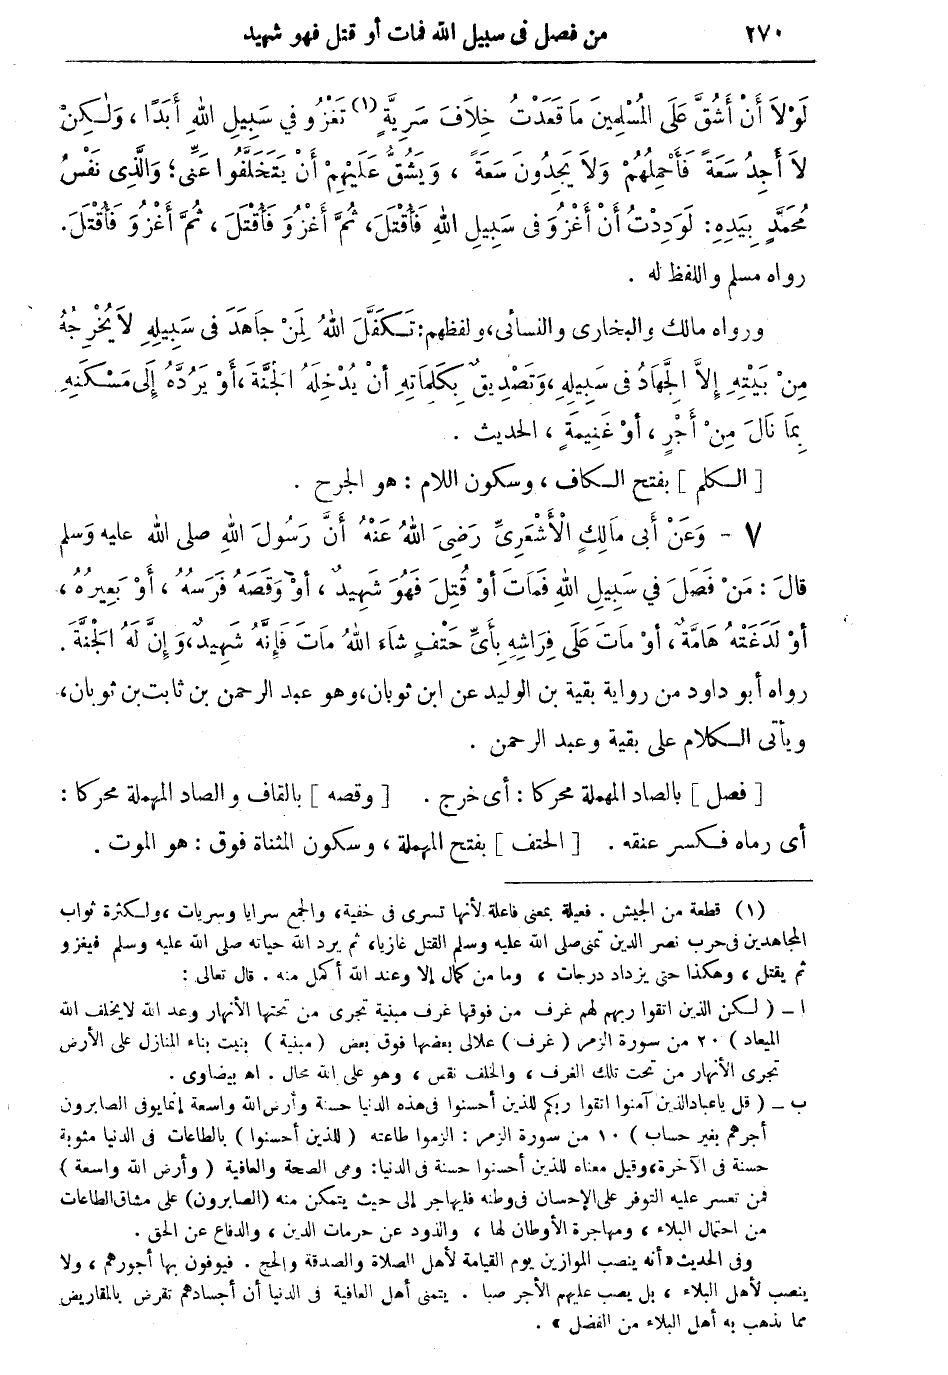 ٢٧٠ من فصل فى سبيل الله فمات أو قتل فهو شهيد
لَوْلَا أَنْ أَشُقَّ عَلَى الْمُسْلِمِينَ مَا قَعَدْتُ خِلَافَ سَرِيَّةٍ (١) تَغْزُو فِي سَبِيلِ اللهِ أَبَدًا ، وَلَكِنْ
لَا أَجِدُ سَعَةً فَأَحْمِلُهُمْ وَلَا يَجِدُونَ سَعَةً ، وَيَشُقُّ عَلَيْهِمْ أَنْ يَتَخَلَّفُوا عَنِّي ؛ وَالَّذِى نَفْسُ
مُحَمَّدٍ بِيَدِهِ : لَوَدِدْتُ أَنْ أَغْزُوَ فى سَبِيلِ اللهِ فَأُقْتَلَ، ثُمَّ أَغْزُوَ فَأُقْتَلَ ، ثُمَّ أَغْزُوَ فَأُقْتَلَ.
رواه مسلم واللفظ له .
ورواه مالك والبخارى والنسائى، ولفظهم: تَكَفَّلَ اللهُ لِمَنْ جَاهَدَ فى سَبِيلِهِ لَا يُخْرِجُهُ
مِنْ بَيْتِهِ إِلاَّ الْجِهَادُ فى سَبِيلِهِ ، وَتَصْدِيقٌ بِكَلِمَاتِهِ أَنْ يُدْخِلَهُ الْجَنَّةَ ، أَوْ يَرُدَّهُ إِلَى مَسْكَنِهِ
بِمَا نَالَ مِنْ أَجْرٍ ، أَوْ غَنِيمَةٍ ، الحديث .
[ الكلم ] بفتح الكاف ، وسكون اللام : هو الجرح .
٧ - وَعَنْ أَبى مَالِكٍ الْأَشْعَرِىِّ رَضِىَ اللهُ عَنْهُ أَنَّ رَسُولَ اللهِ صلى الله عليه وَسلم
قالَ : مَنْ فَصَلَ فِي سَبِيلِ اللهِ فَمَاتَ أَوْ قُتِلَ فَهُوَ شَهِيدٌ ، أَوْ وَقَصَهُ فَرَسُهُ ، أَوْ بَعِيرُهُ ،
أَوْ لَدَغَتْهُ هَامَّةٌ ، أَوْ مَاتَ عَلَى فِرَاشِهِ بِأَىِّ حَتْفٍ شَاءَ اللهُ مَاتَ فَإِنَّهُ شَهِيدٌ، وَإِنَّ لَهُ الْجَنَّةَ .
رواه أبو داود من رواية بقية بن الوليد عن ابن ثوبان، وهو عبد الرحمن بن ثابت بن ثوبان،
ويأتى الكلام على بقية وعبد الرحمن .
[ فصل ] بالصاد المهملة محركا : أى خرج . [ وقصه ] بالقاف والصاد المهملة محركا :
أى رماه فكسر عنقه . [ الحتف ] بفتح المهملة ، وسكون المثناة فوق : هو الموت .
(١) قطعة من الجيش . فعيلة بمعنى فاعلة لأنها تسرى فى خفية، والجمع سرايا وسريات ، ولكثرة ثواب
المجاهدين فى حرب نصر الدين تمنى صلى الله عليه وسلم القتل غازيا، ثم يرد الله حياته صلى الله عليه وسلم فيغزو
ثم يقتل ، وهكذا حتى يزداد درجات ، وما من كمال إلا وعند الله أكمل منه . قال تعالى :
ا ــ ( لكن الذين اتقوا ربهم لهم غرف من فوقها غرف مبنية تجرى من تحتها الأنهار وعد الله لا يخلف الله
الميعاد ) ٢٠ من سورة الزمر ( غرف ) علالى بعضها فوق بعض ( مبنية ) بنيت بناء المنازل على الأرض
تجرى الأنهار من تحت تلك الغرف ، والخلف نقس ، وهو على الله محال . اهـ بيضاوى .
ب ــ ( قل ياعباد الذين آمنوا اتقوا ربكم للذين أحسنوا فى هذه الدنيا حسنة وأرض الله واسعة إنما يوفى الصابرون
أجرهم بغير حساب ) ١٠ من سورة الزمر : الزموا طاعته ( للذين أحسنوا ) بالطاعات فى الدنيا مثوبة
حسنة فى الآخرة، وقيل معناه للذين أحسنوا حسنة فى الدنيا: وهى الصحة والعافية ( وأرض الله واسعة )
فمن تعسر عليه التوفر على الإحسان فى وطنه فليهاجر إلى حيث يتمكن منه (الصابرون) على مشاق الطاعات
من احتمال البلاء ، ومهاجرة الأوطان لها ، والذود عن حرمات الدين ، والدفاع عن الحق .
وفى الحديث «أنه ينصب الموازين يوم القيامة لأهل الصلاة والصدقة والحج . فيوفون بها أجورهم ، ولا
ينصب لأهل البلاء ، بل يصب عليهم الأجر صبا . يتمنى أهل العافية فى الدنيا أن أجسادهم تقرض بالمقاريض
مما يذهب به أهل البلاء من الفضل » .